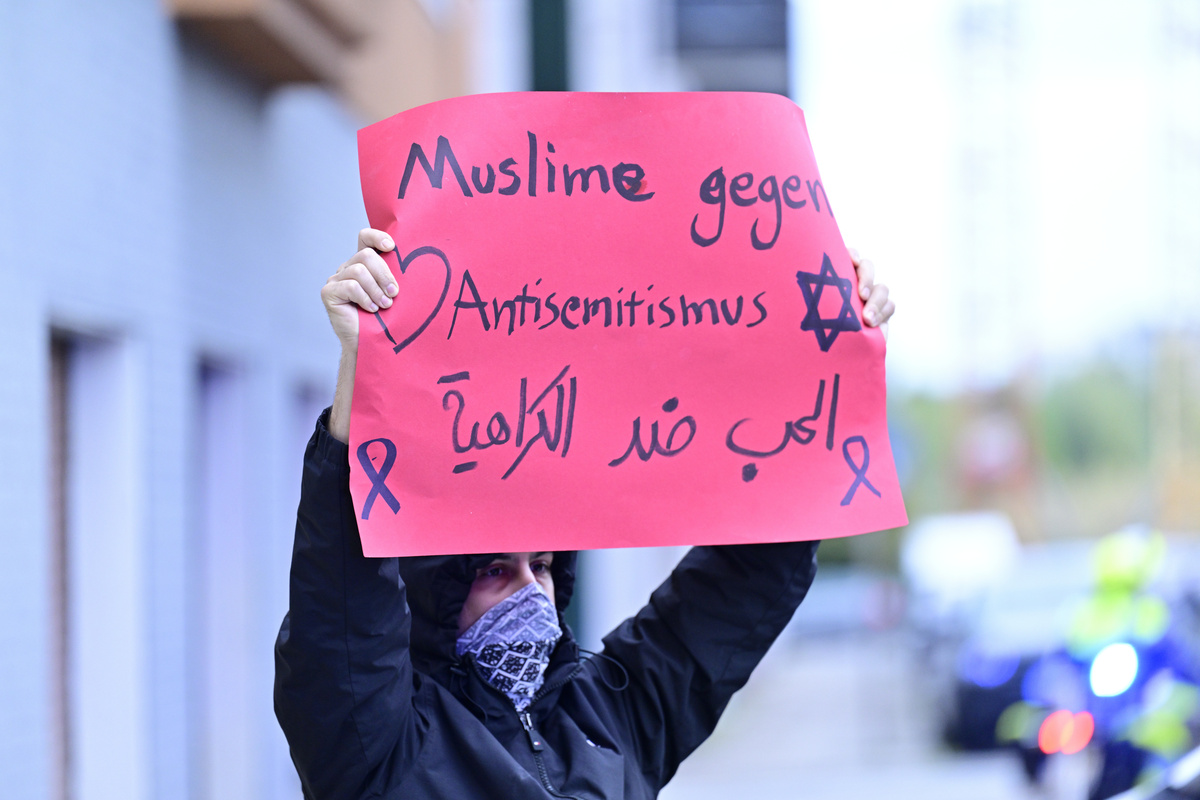 Muslime gegen
Antisemitismus
الحب ضد الكراهية